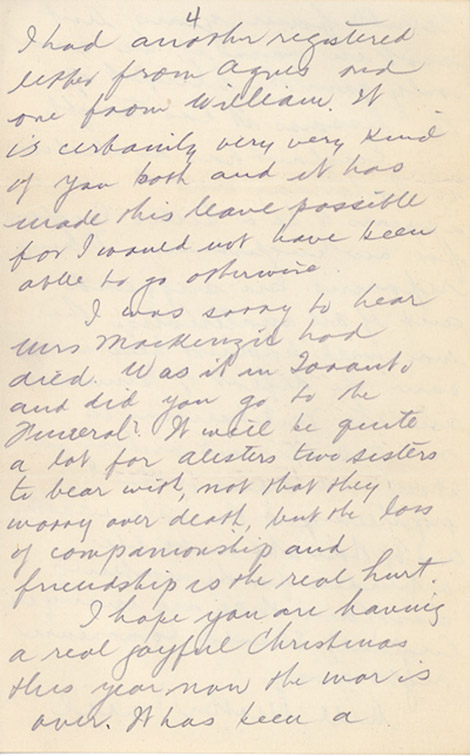 4
I had another registered
letter from Agnes and
one from William. It
is certainly very very kind
of you both and it has
made this leave possible
for I would not have been
able to go otherwise.
I was sorry to hear
Mrs MacKenzie had
died. Was it in Toronto
and did you go to the
Funeral? It will be quite
a lot for alisters two sisters
to bear with, not that they
worry over death, but the loss
of companionship and
friendship is the real hurt.
I hope you are having
a real joyful Christmas
this year now the war is
over. It has been a